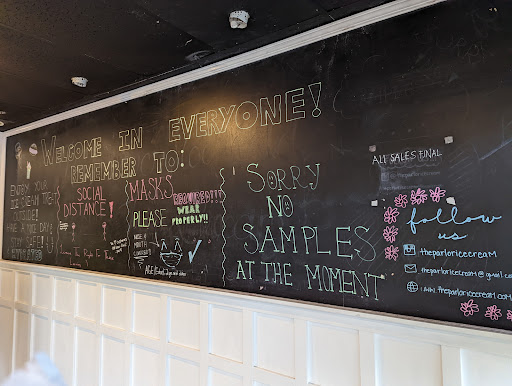 WELCOME IN EVERYONE!
REMEMBER TO:
ENJOY YOUR
ICE CREAM TREATS
OUTSIDE!
HAVE A NICE DAY!
STAY SAFE!
SOCIAL
DISTANCE!
MASKS
REQUIRED!!!
PLEASE
WEAR
PROPERLY!!
NOSE &
MOUTH
SORRY
NO
SAMPLES
AT THE MOMENT
ALL SALES FINAL
follow
us
theparloricecream
theparloricecream@gmail.com
www.theparloricecream.com